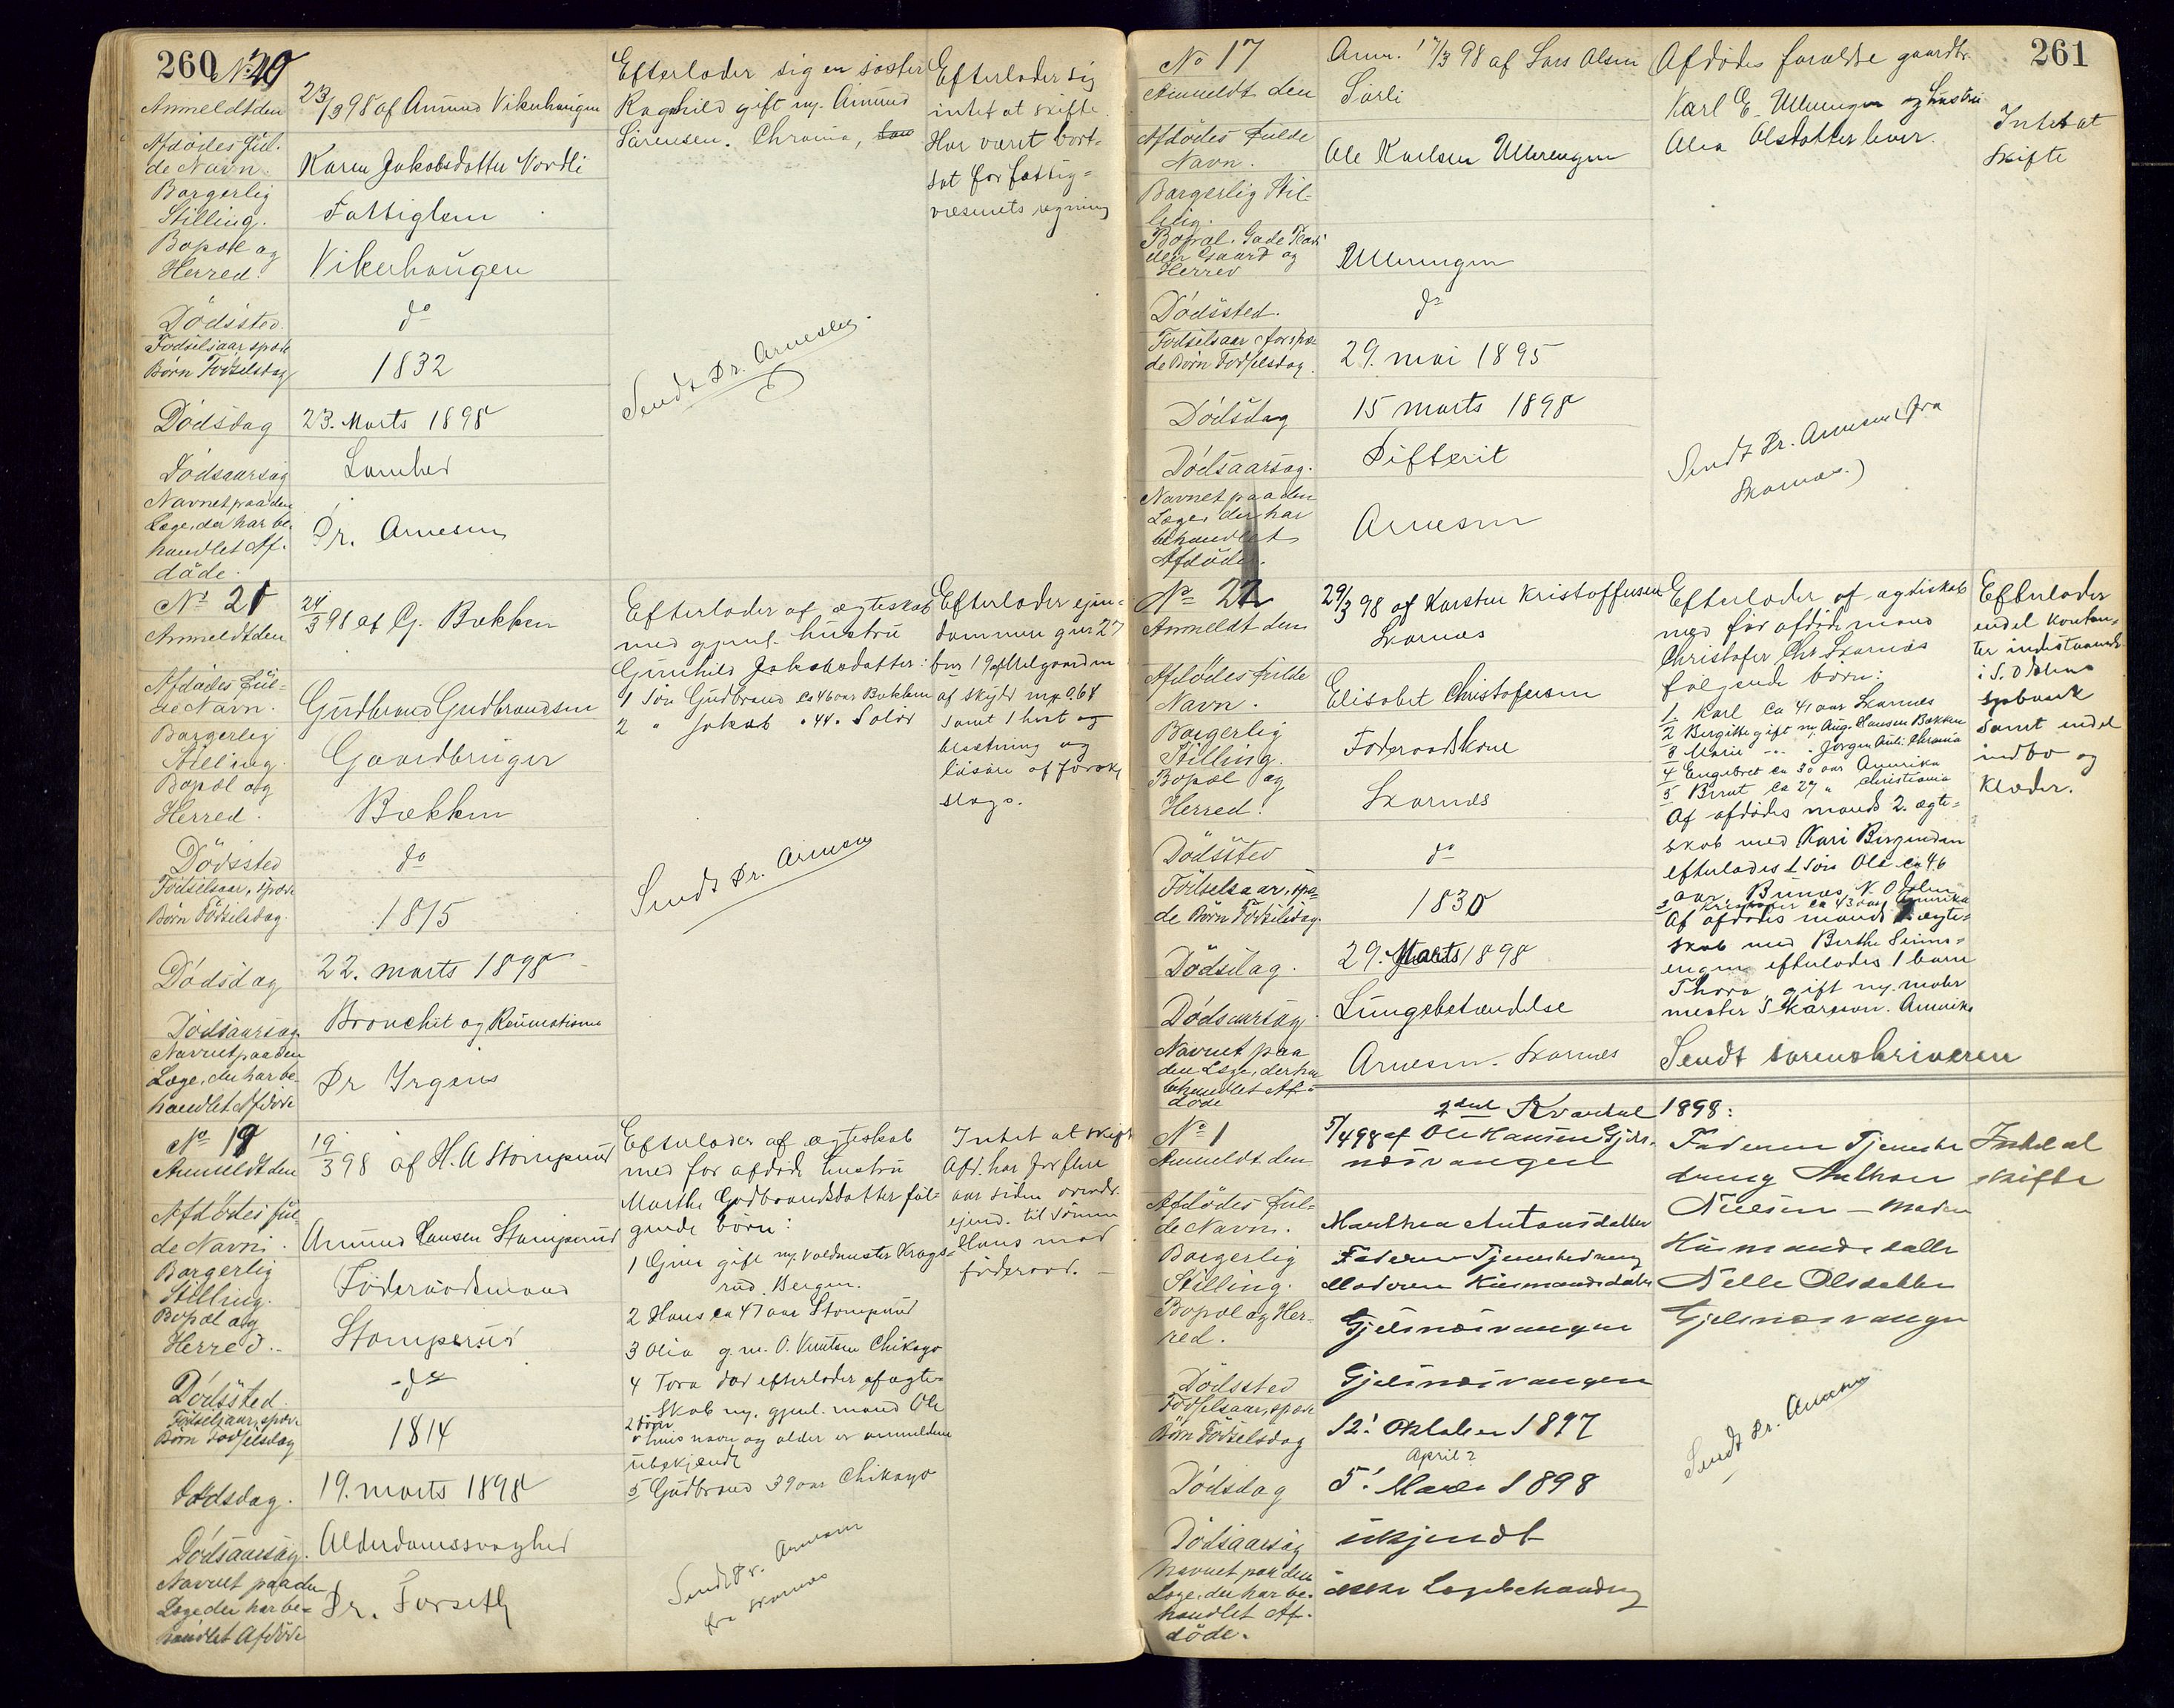 260
No 20
Anmeldt den
23/3 98 af Amund Vikerhaugen
Afdødes ful-
de Navn.
Karen Jakobsdatter Nordli
Borgerlig
Stilling.
Fattiglem
Bopæl og
Herred.
Vikerhaugen
Dödssted.
do
Fødselsaar spæde
Børn Fødselsdag
1832
Dödsdag
23. Marts 1898
Dødsaarsag
Lamhed
Navnet paa den
Læge, der har be-
handlet Af-
döde.
Dr. Arnesen
Efterlader sig en søster
Ragnhild gift m. Amund
Sørensen. Chrania,
Sendt Dr. Arnesen.
Efterlader sig
intet at skifte.
Har været bort-
sat for fattig-
væsenets regning
No 21
Anmeldt den
24/3 98 af G. Bækken
Afdødes Ful-
de Navn.
Gudbrand Gudbrandsen
Borgerlig
Stilling.
Gaardbruger
Bopæl og
Herred.
Bækken
Dödssted
do
Födselsaar, spæde
Börn Födselsdag.
1815
Dödsdag
22. marts 1898
Dödsaarsag
Bronchit og Reumatisme
Navnet paa den
Læge, der har be-
handlet Afdøde
Dr Irgens
Efterlader af ægteskab
med gjenl. hustru
Gunhild Jakobsdatter:
1 Søn Gudbrand ca 46 aar Bækken
2 " Jakob " 44 " Solør
Sendt Dr. Arnesen
Efterlader ejen-
dommen gnr 27
bnr 19 Melgaarden
af skyld mk 0.68
samt 1 hest og
besætning og
løsøre af forskj.
slags.
No 19
Anmeldt den
19/3 98 af H. A Stomperud
Afdødes ful-
de Navn.
Amund Hansen Stomperud
Borgerlig
Stilling.
Föderaadsmand
Bopæl og
Herred.
Stomperud
Dödssted.
do
Födselsaar, spæde
Börn Födselsdag
1814
Dødsdag.
19. marts 1898
Dödsaarsag.
Alderdomssvaghed
Navnet paa den
Læge der har be-
handlet Afdöde
Dr. Forseth
Efterlader af ægteskab
med før afdøde hustru
Marthe Gudbrandsdatter føl-
gende børn:
1 Gina gift m. Valdmester Krogs-
rud. Bergen.
2 Hans ca 47 aar Stomperud
3 Olia g. m. O. Knutsen Chikago
4 Tora død efterlader af ægte-
skab m. gjenl. mand Ole
2 børn
hvis navn og alder er anmelderen
ubekjendt
5 Gudbrand 39 aar Chikago
Sendt Dr. Arnesen
fra Skarnes
Intet at skifte
Afd. har for flere
aar siden overdr.
ejend. til sønnen
Hans mod
föderaad.
261
No 17
Anmeldt den
Anm. 17/3 98 af Lars Olsen
Sørli
Afdødes fulde
Navn.
Ole Karlsen Ullerengen
Borgerlig Stil-
ling.
Bopæl. Gade
Gaard og
Herred
Ullerengen
Dödssted.
do
Fødselsaar, for spæ-
de Börn Fødselsdag.
29. mai 1895
Dödsdag
15 marts 1898
Dödsaarsag.
Difterit
Navnet paa den
Læge, der har
behandlet
Afdöde.
Arnesen
Afdødes forældre gaardbr.
Karl E. Ullerengen og hustru
Olea Olsdatter lever.
Sendt Dr. Arnesen (fra
Skarnes.)
Intet at
skifte
No 22
Anmeldt den
29/3 98 af Karsten Kristoffersen
Skarnes
Afdödes fulde
Navn.
Elisabet Christofersen
Borgerlig
Stilling.
Föderaadskone
Bopæl og
Herred.
Skarnes
Dödssted
do
Födselsaar, spæ-
de Börn Födselsdag.
1830
Dödsdag.
29. Marts 1898
Dödsaarsag
Lungebetændelse
Navnet paa
den Læge, der har
behandlet Af-
döde
Arnesen. Skarnes
Efterlader af ægteskab
med før afdøde mand
Christofer Chr. Skarnes
følgende børn:
1 Karl ca 41 aar Skarnes
2 Birgitte gift m. Aug. Hansen Bækken
3 Marie " " Jørgen Chrania
4 Engebret ca 30 aar Amerika
5 Bernt ca 27 " Christiania
Af afdødes mands 2. ægte-
skab med Kari
efterlades 1 søn Ole ca 46
aar, N. Odalen
2 Kristoffer ca 43 aar Amerika
Af afdødes mands ægte-
skab med Berthe
efterlades 1 barn
Thora, gift m. maler
mester Amerika
Sendt sorenskriveren
Efterlader
endel kontan-
ter indestaaende
i S. Odalens
spbank
samt endel
indbo og
klæder.
2det Kvartal 1898:
No 1
Anmeldt den
5/4 98 af Ole Hansen Gjels-
næsvangen
Afdödes ful-
de Navn.
Marthea Antonsdatter
Borgerlig
Stilling.
Faderen Tjenestedreng
Moderen Husmandsdatter
Bopæl og Her-
red.
Gjelsnæsvangen
Dödssted
Gjelsnæsvangen
Födselsaar, spæde
Börn Födselsdag
12' Oktober 1897
Dödsdag
April?
5' Marts 1898
Dödsaarsag
ukjendt
Navnet paa den
Læge, der har be-
handlet Af-
döde.
ikke Lægebehandling
Faderen Tjeneste
dreng Anthon
Nilsen – Moderen
Husmands datter
Nelle Olsdatter
Gjelsnæsvangen
Sendt Dr. Arnesen
Intet at
skifte